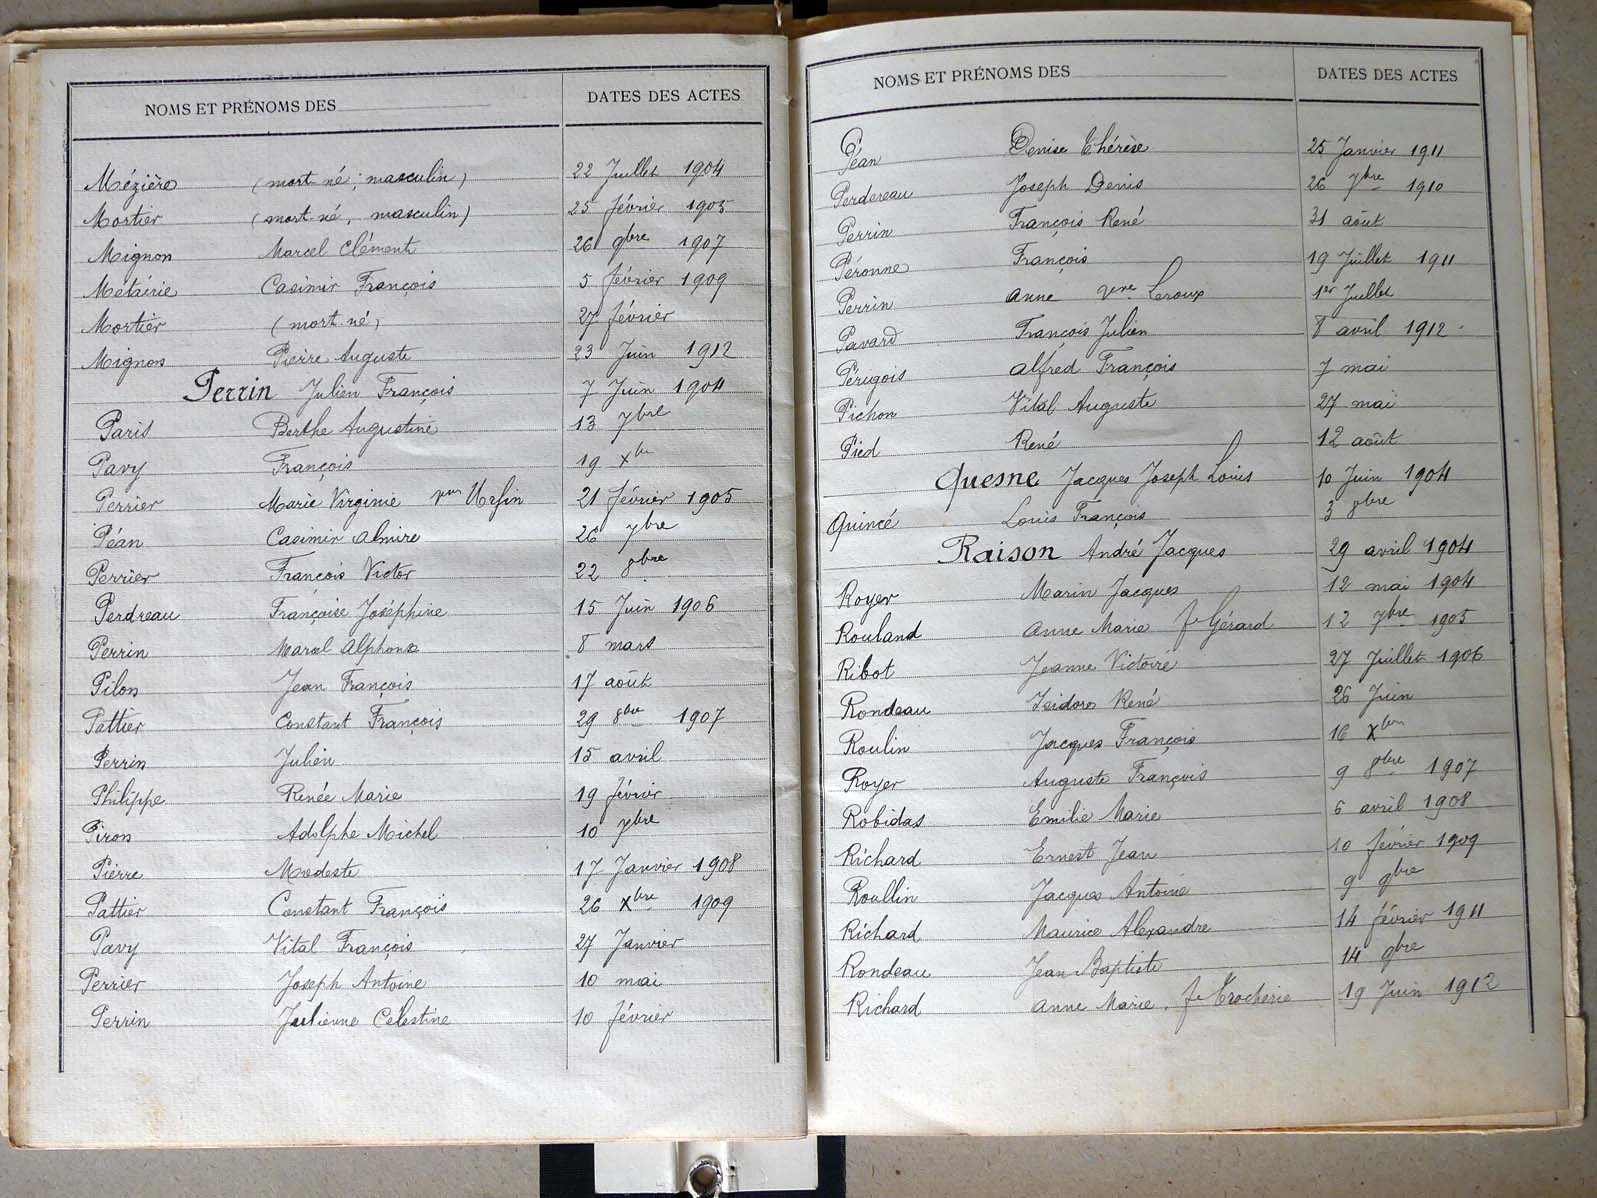 NOMS ET PRÉNOMS DES DATES DES ACTES
Mézière (mort né, masculin) 22 Juillet 1904
Mortier (mort-né, masculin) 25 février 1905
Mignon Marcel Clément 26 9bre 1907
Métairie Casimir François 5 février 1909
Mortier (mort-né) 27 février
Mignon Pierre Auguste 23 Juin 1912
Perrin Julien François 7 Juin 1904
Paris Berthe Augustine 13 7bre
Pavy François 19 Xbre
Perrier Marie Virginie 21 février 1905
Péan Casimir Almire 26 7bre
Perrier François Victor 22 8bre
Perdreau Françoise Joséphine 15 Juin 1906
Perrin Marcel Alphonse 8 mars
Pilon Jean François 17 août
Pattier Constant François 29 8bre 1907
Perrin Julien 15 avril
Philippe Renée Marie 19 février
Piron Adolphe Michel 10 7bre
Pierre Modeste 17 Janvier 1908
Pattier Constant François 26 Xbre 1909
Pavy Vital François 27 Janvier
Perrier Joseph Antoine 10 mai
Perrin Julienne Celestine 10 février
NOMS ET PRÉNOMS DES DATES DES ACTES
Péan Denise Thérèse 25 Janvier 1911
Perdereau Joseph Denis 26 7bre 1910
Perrin François René 31 août
Péronne François 19 Juillet 1911
Perrin Anne vve Leroux 1er Juillet
Pavard François Julien 8 avril 1912
Pérugois Alfred François 7 mai
Pichon Vital Auguste 27 mai
Pied René 12 août
Quesne Jacques Joseph Louis 10 Juin 1904
Quincé Louis François 3 8bre
Raison André Jacques 29 avril 1904
Royer Marin Jacques 12 mai 1904
Rouland Anne Marie fe Gérard 12 7bre 1905
Ribot Jeanne Victoire 27 Juillet 1906
Rondeau Isidore René 26 Juin
Roulin Jacques François 16 Xbre
Royer Auguste François 9 8bre 1907
Robidas Emilie Marie 6 avril 1908
Richard Ernest Jean 10 février 1909
Roullin Jacques Antoine 9 9bre
Richard Maurice Alexandre 14 février 1911
Rondeau Jean-Baptiste 14 9bre
Richard Anne Marie, fe Trocherie 19 Juin 1912